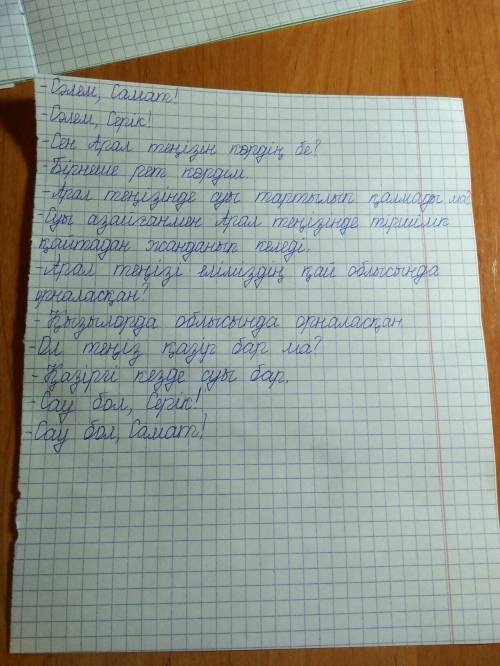 - Сәлем, Самат!
- Сәлем, Серік!
- Сен Арал теңізін көрдің бе?
- Бірнеше рет көрдім.
- Арал теңізінде суы тартылып қалмады ма?
- Суы азайғанмен Арал теңізінде тіршілік
қайтадан жанданып келеді.
- Арал теңізі еліміздің қай облысында
орналасқан?
- Қызылорда облысында орналасқан.
- Ол теңіз қазір бар ма?
- Қазіргі кезде суы бар.
- Сау бол, Серік!
- Сау бол, Самат!